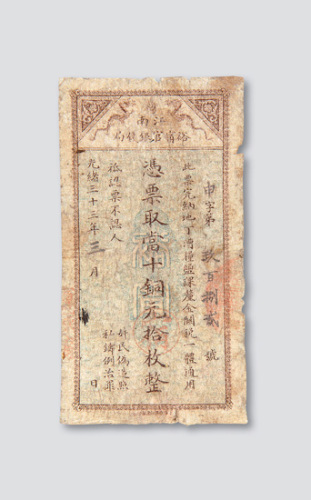 江南
裕甯官銀錢局
申字第 玖百捌貳 號
此票完納地丁漕糧鹽課釐金關稅一體通用
憑票取當十銅元拾枚整
祗認票不認人
光緒三十三年三月 日
軍民偽造照
私鑄例治罪